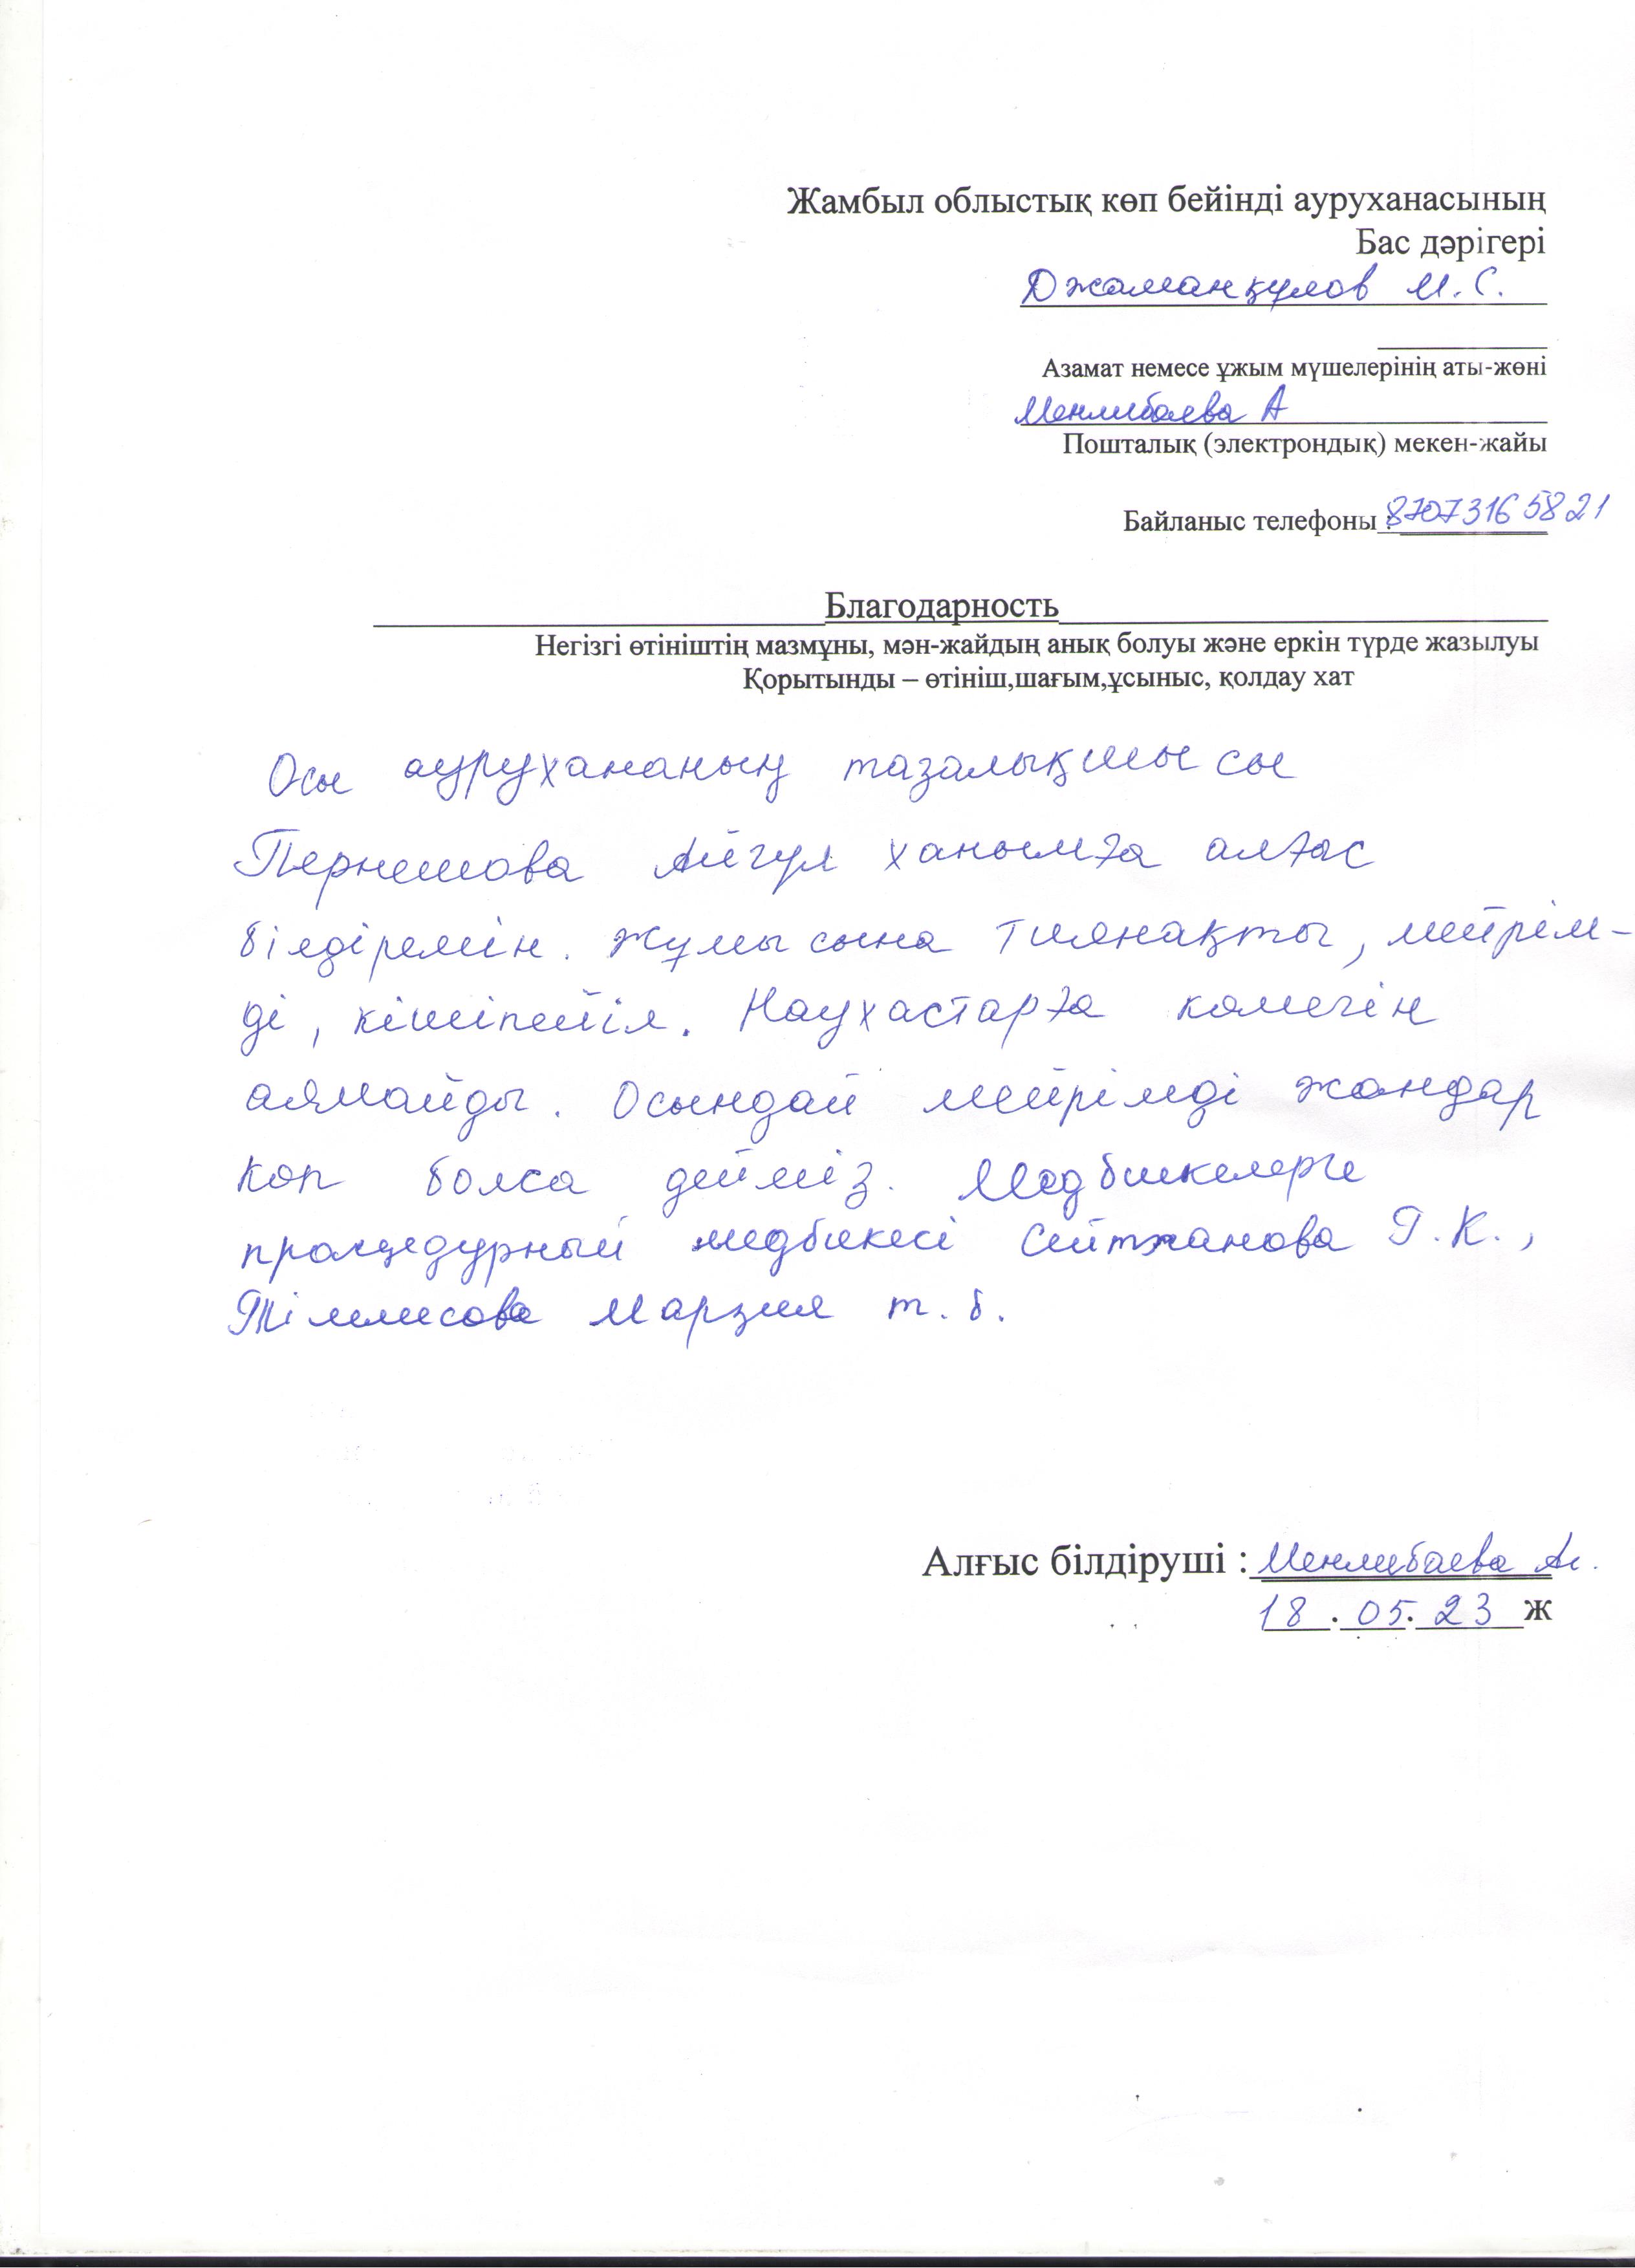 Жамбыл облыстық көп бейінді ауруханасының
Бас дәрігері
Джаманқулов М. С.
Азамат немесе ұжым мүшелерінің аты-жөні
Менлибаева А
Пошталық (электрондық) мекен-жайы
Байланыс телефоны : 87073165821
Благодарность
Негізгі өтініштің мазмұны, мән-жайдың анық болуы және еркін түрде жазылуы
Қорытынды – өтініш,шағым,ұсыныс, қолдау хат
Осы аурухананың тазалықшысы
Пернешова Айгул ханымға алғас
білдіремін. Жұмысына тиянақты, мейрім-
ді, кішіпейіл. Наухастарға комегін
аямайды. Осындай мейрімді жандар
коп болса дейміз. Медбикелерге
процедурный медбикесі Сейтжанова Г. К.,
Марзия т. б.
Алғыс білдіруші : Менлибаева
18 . 05. 23 ж